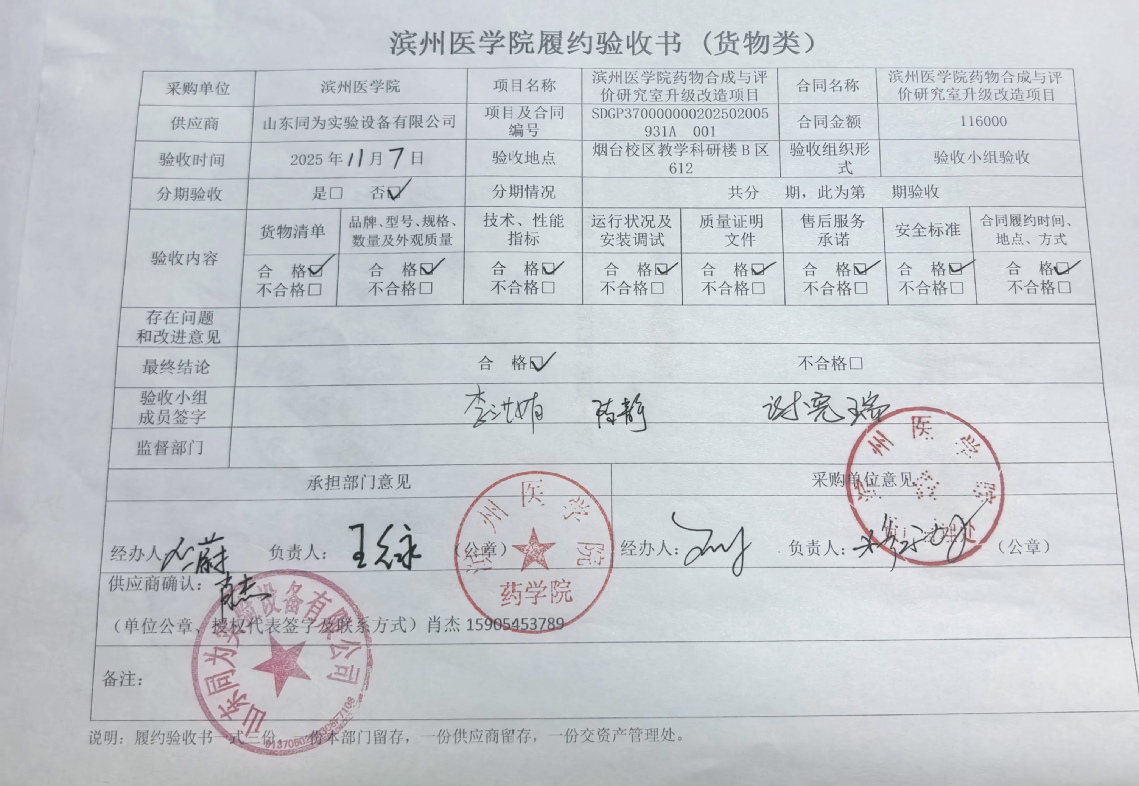 滨州医学院履约验收书（货物类）
采购单位 滨州医学院 项目名称 滨州医学院药物合成与评价研究室升级改造项目 合同名称 滨州医学院药物合成与评价研究室升级改造项目
供应商 山东同为实验设备有限公司 项目及合同编号 SDGP370000000202502005931A 001 合同金额 116000
验收时间 2025年11月7日 验收地点 烟台校区教学科研楼B区612 验收组织形式 验收小组验收
分期验收 是□ 否☑ 分期情况 共分 期，此为第 期验收
验收内容 货物清单 品牌、型号、规格、数量及外观质量 技术、性能指标 运行状况及安装调试 质量证明文件 售后服务承诺 安全标准 合同履约时间、地点、方式
合 格☑ 合 格☑ 合 格☑ 合 格☑ 合 格☑ 合 格☑ 合 格☑ 合 格☑
不合格□ 不合格□ 不合格□ 不合格□ 不合格□ 不合格□ 不合格□ 不合格□
存在问题和改进意见
最终结论 合 格☑ 不合格□
验收小组成员签字 陈静
监督部门
承担部门意见 采购单位意见
经办人 负责人： （公章） 经办人： 负责人： （公章）
滨州医学院
药学院
滨州医学院
供应商确认： 肖杰
（单位公章、授权代表签字及联系方式）肖杰 15905453789
山东同为实验设备有限公司
备注：
说明：履约验收书一式三份，一份本部门留存，一份供应商留存，一份交资产管理处。